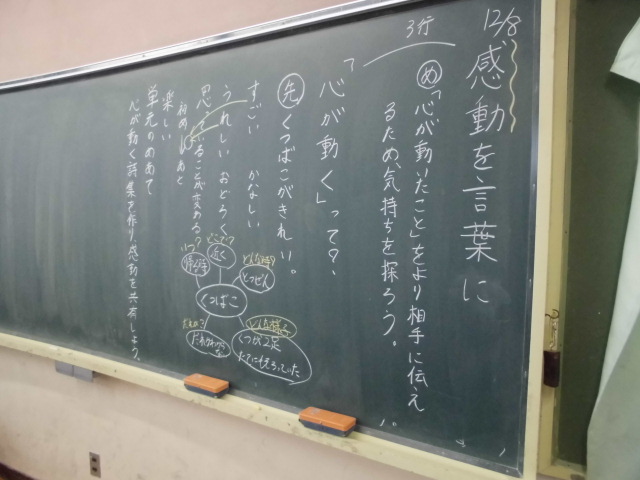 12/8
感動を言葉に
3行
め「心が動いたこと」をより相手に伝え
るため、気持ちを探ろう。
「心が動く」って？
先 くつばこがきれい。
すごい かなしい
うれしい おどろく
思ってることが変わる
初め あと
楽しい
単元のめあて
心が動く詩集を作り、感動を共有しよう。
いつ？
どこで？
近く
どんな時？
とつぜん
くつばこ
どんな様子
くつが2足